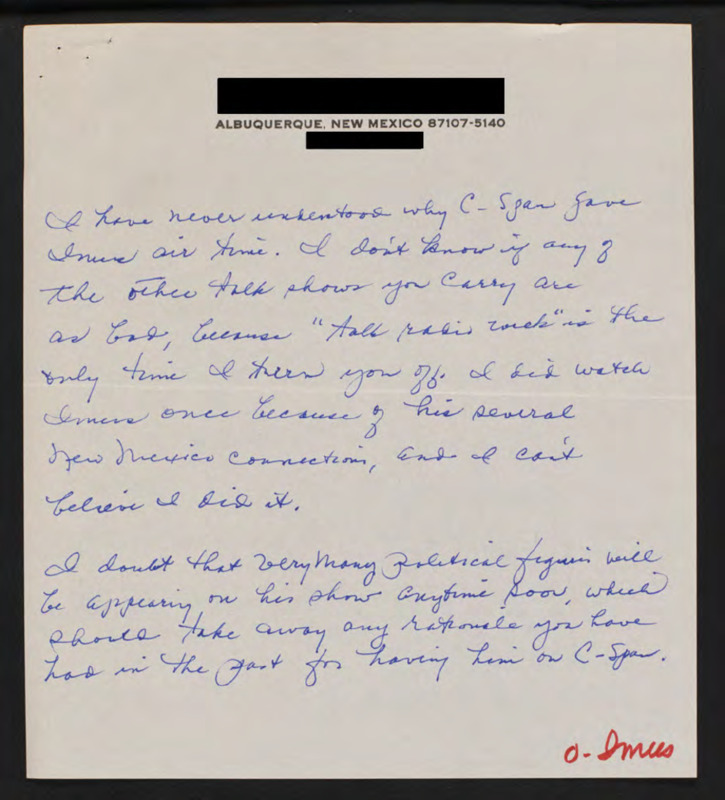 ALBUQUERQUE, NEW MEXICO 87107-5140
I have never understood why C-Span gave
Imus air time. I don't know if any of
the other talk shows you carry are
as bad, because "talk radio week" is the
only time I turn you off. I did watch
Imus once because of his several
New Mexico connections, and I can't
believe I did it.
I doubt that very many political figures will
be appearing on his show anytime soon, which
should take away any rationale you have
had in the past for having him on C-Span.
O-Imus